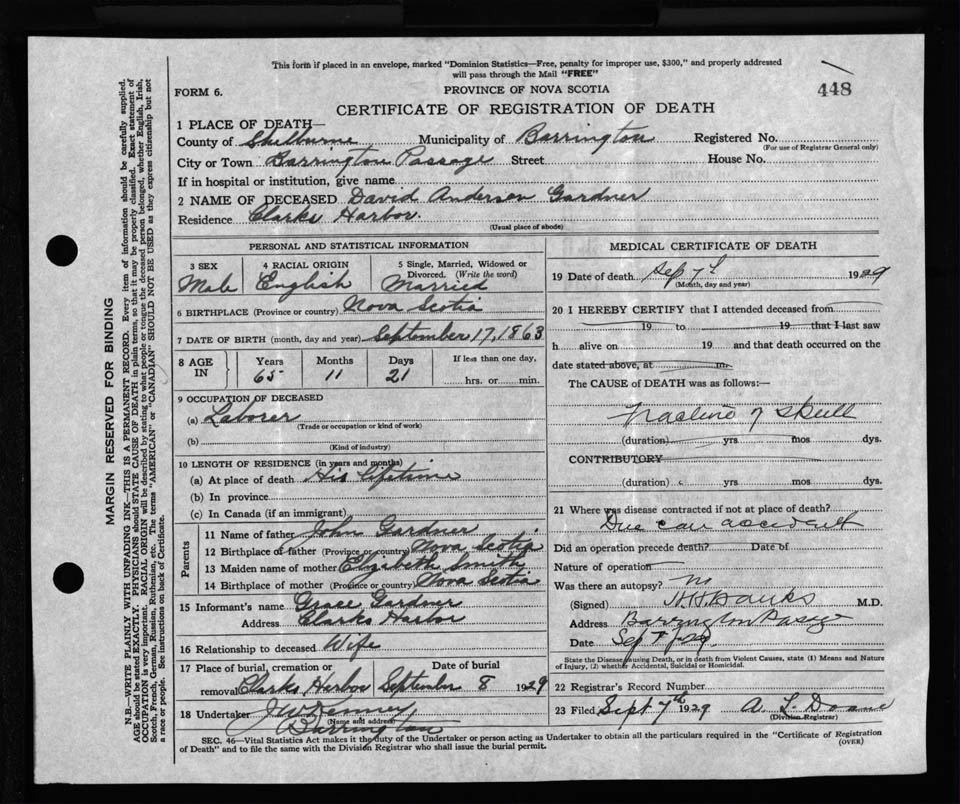 This form if placed in an envelope, marked "Dominion Statistics—Free, penalty for improper use, $300," and properly addressed
will pass through the Mail "FREE"
448
FORM 6.
PROVINCE OF NOVA SCOTIA
CERTIFICATE OF REGISTRATION OF DEATH
1 PLACE OF DEATH—
County of Shelburne Municipality of Barrington Registered No.
(For use of Registrar General only)
City or Town Barrington Passage Street House No.
If in hospital or institution, give name
2 NAME OF DECEASED David Anderson Gardner
Residence Clarks Harbor.
(Usual place of abode)
PERSONAL AND STATISTICAL INFORMATION
3 SEX 4 RACIAL ORIGIN 5 Single, Married, Widowed or
Divorced. (Write the word)
Male English Married
6 BIRTHPLACE (Province or country) Nova Scotia
7 DATE OF BIRTH (month, day and year) September 17, 1863
8 AGE IN Years Months Days If less than one day,
65 11 21 hrs. or min.
9 OCCUPATION OF DECEASED
(a) Laborer
(Trade or occupation or kind of work)
(b)
(Kind of industry)
10 LENGTH OF RESIDENCE (in years and months)
(a) At place of death His lifetime
(b) In province
(c) In Canada (if an immigrant)
Parents
11 Name of father John Gardner
12 Birthplace of father (Province or country) Nova Scotia
13 Maiden name of mother Elizabeth Smith
14 Birthplace of mother (Province or country) Nova Scotia
15 Informant's name Grace Gardner
Address Clarks Harbor
16 Relationship to deceased Wife
17 Place of burial, cremation or Date of burial
removal Clarks Harbor September 8 1929
18 Undertaker J W Kenney
(Name and address)
Barrington
MEDICAL CERTIFICATE OF DEATH
19 Date of death Sep 7 1929
(Month, day and year)
20 I HEREBY CERTIFY that I attended deceased from
19 to 19 that I last saw
h alive on 19 and that death occurred on the
date stated above, at m.
The CAUSE of DEATH was as follows:—
Fracture of Skull
(duration) yrs mos dys.
CONTRIBUTORY
(duration) yrs mos dys.
21 Where was disease contracted if not at place of death?
Due car accident
Did an operation precede death? Date of
Nature of operation
Was there an autopsy? no
(Signed) Banks M.D.
Address Barrington Passage
Date Sep 7
State the Disease causing Death, or in death from Violent Causes, state (1) Means and Nature
of Injury, (2) whether Accidental, Suicidal or Homicidal.
22 Registrar's Record Number
23 Filed Sept 7th 1929 A. L. Doane
(Division Registrar)
SEC. 46—Vital Statistics Act makes it the duty of the Undertaker or person acting as Undertaker to obtain all the particulars required in the "Certificate of Registration
of Death" and to file the same with the Division Registrar who shall issue the burial permit.
(OVER)
MARGIN RESERVED FOR BINDING
N.B.—WRITE PLAINLY WITH UNFADING INK—THIS IS A PERMANENT RECORD. Every item of information should be carefully supplied.
AGE should be stated EXACTLY. PHYSICIANS should STATE CAUSE OF DEATH in plain terms, so that it may be properly classified. Exact statement of
OCCUPATION is very important. RACIAL ORIGIN will be described by stating to what people or tongue the deceased person belonged, whether English, Irish,
Scotch, French, German, Russian, Ruthenian, etc. The terms "AMERICAN" or "CANADIAN" SHOULD NOT BE USED as they express citizenship but not
a race or people. See instructions on back of Certificate.